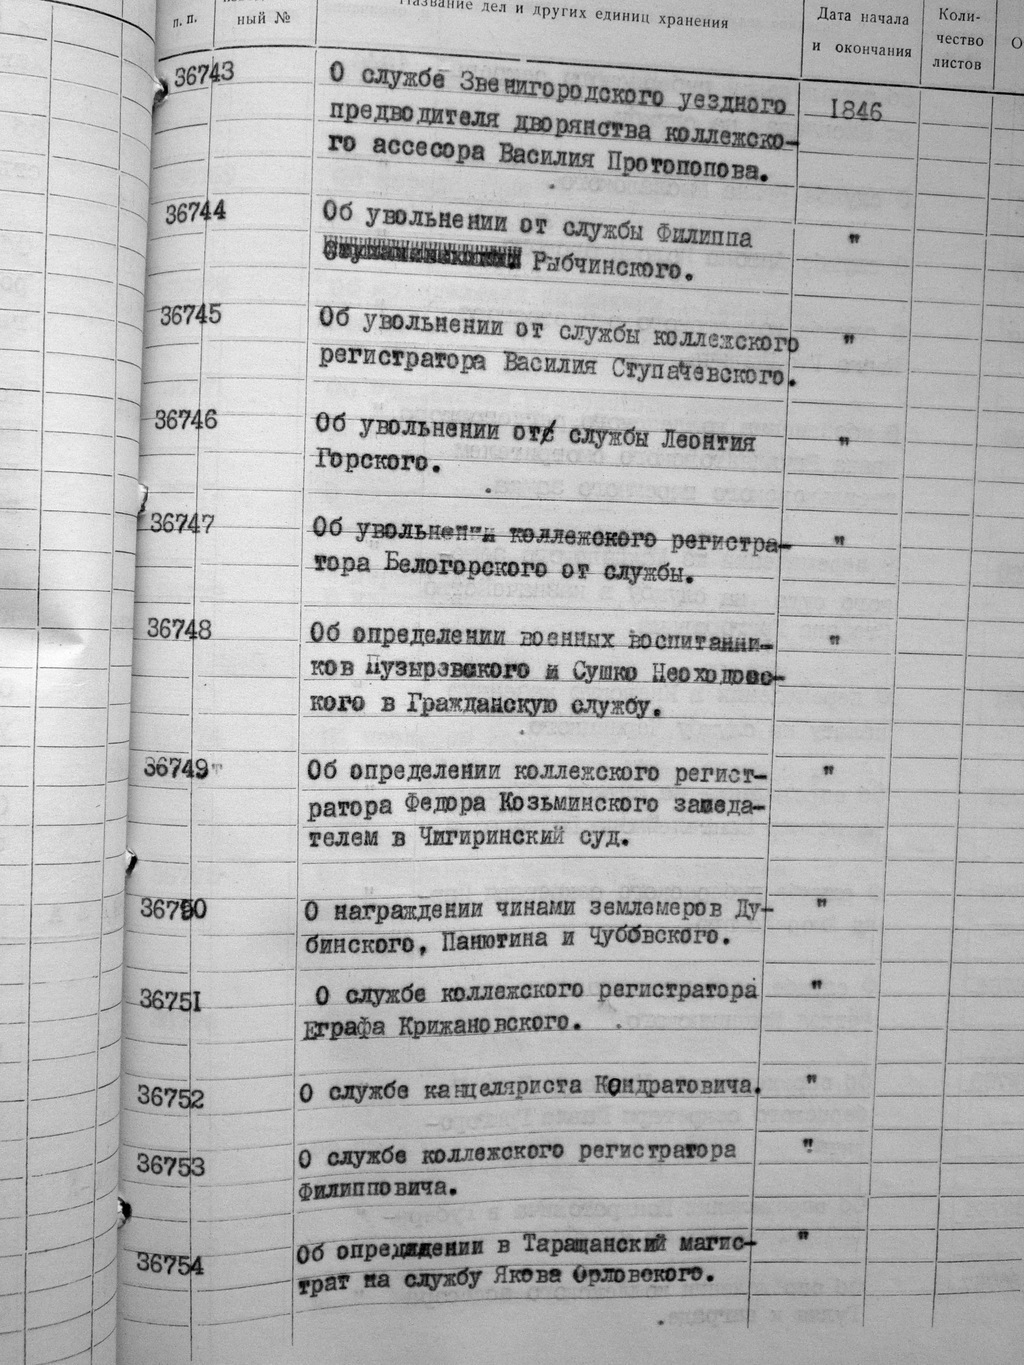 п. п.
ный №
Название дел и других единиц хранения
Дата начала
и окончания
Коли-
чество
листов
О
36743
О службе Звенигородского уездного
1846
предводителя дворянства коллежско-
го ассесора Василия Протопопова.
36744
Об увольнении от службы Филиппа
"
Рыбчинского.
36745
Об увольнении от службы коллежского
"
регистратора Василия Ступачевского.
36746
Об увольнении от службы Леонтия
"
Горского.
36747
Об увольнении коллежского регистра-
"
тора Белогорского от службы.
36748
Об определении военных воспитанни-
"
ков Пузыревского и Сушко Неоходовс-
кого в Гражданскую службу.
36749
Об определении коллежского регист-
"
ратора Федора Козьминского заседа-
телем в Чигиринский суд.
36750
О награждении чинами землемеров Ду-
"
бинского, Панютина и Чубовского.
36751
О службе коллежского регистратора
"
Еграфа Крижановского.
36752
О службе канцеляриста Кондратовича.
"
36753
О службе коллежского регистратора
"
Филипповича.
36754
Об определении в Таращанский магис-
"
трат на службу Якова Орловского.